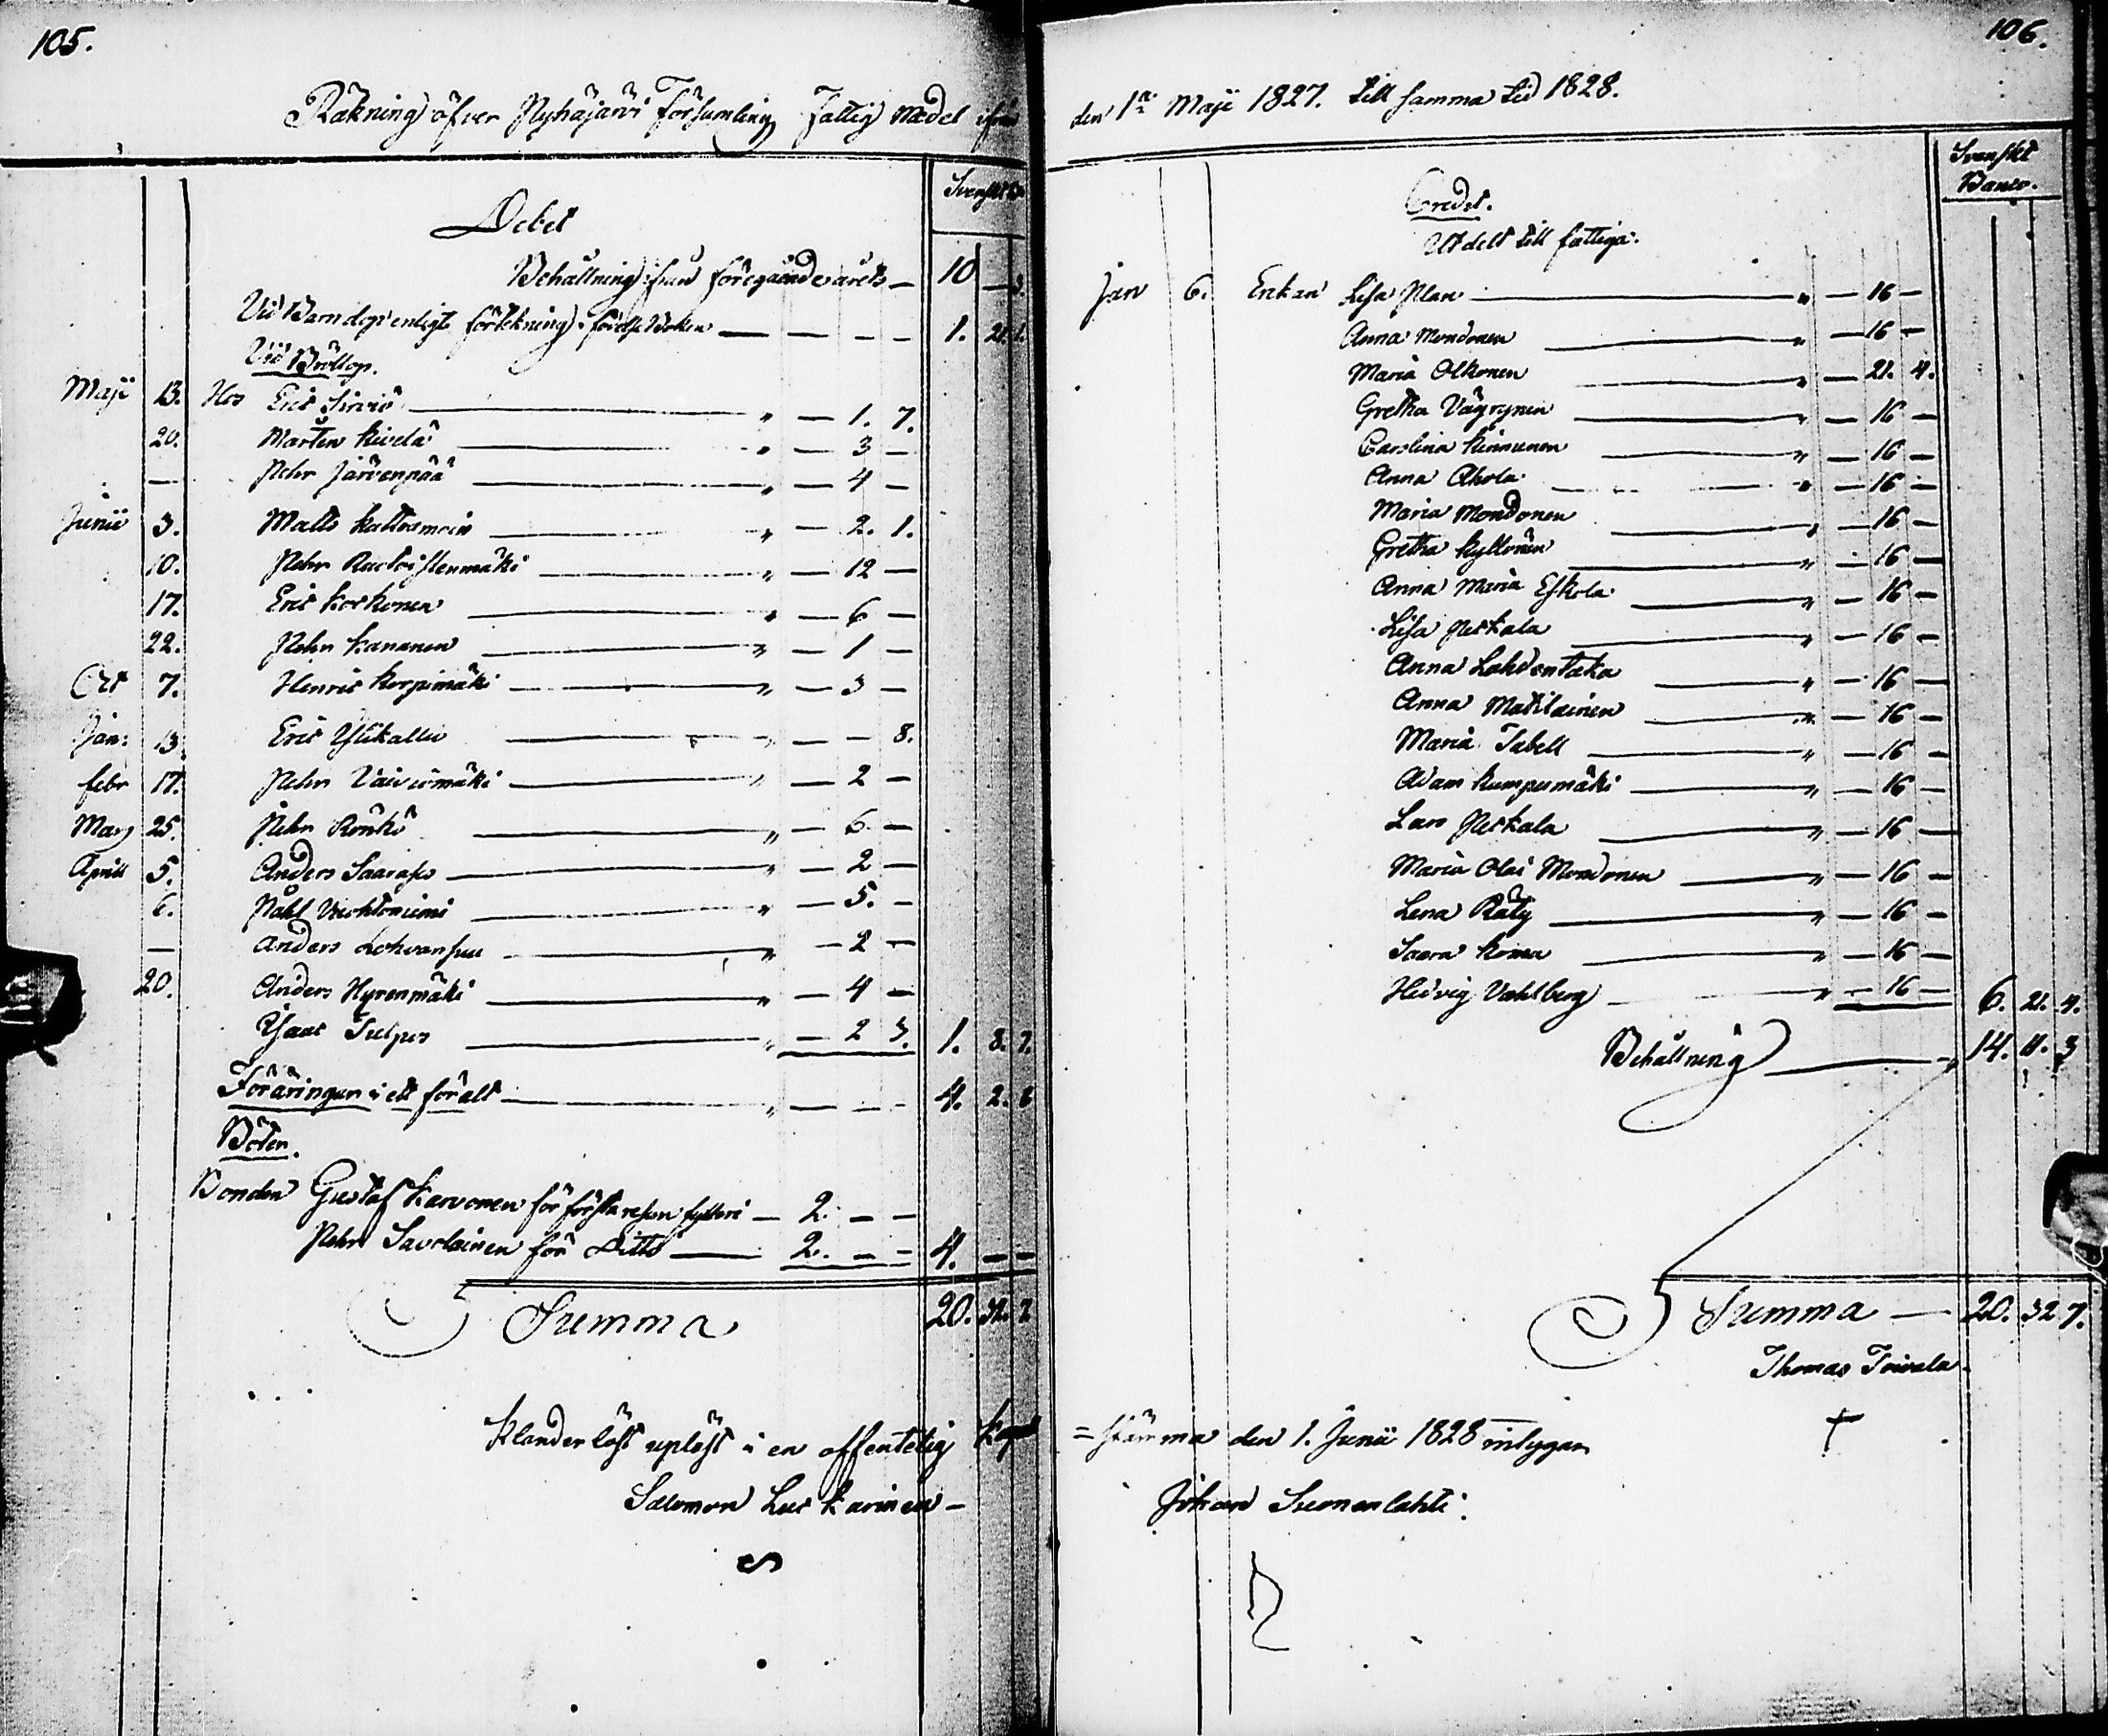 105.
Räkning öfver Pyhäjärvi Församling Fattig Medel ifrån
Svenskt B.
Debet
Behållning ifrån föregående årets — 10 — 3.
Vid Barndop enligt förtekning i födelse Boken — — — 1. 21. 1.
Vid Bröllop.
Maji 13. Hos Eric Sirviö " — 1. 7.
20. Mårten Kivelä " — 3 —
— Pehr Järvenpää " — 4 —
Junii 3. Matts Kattramoin " — 2. 1.
10. Pehr Ruotoistenmäki " — 12 —
17. Eric Korkonen " — 6 —
22. Pehr Kananen " — 1 —
Oct 7. Henric Korpimäki " — 3 —
Jan: 13. Eric Ylikallio " — — 8.
febr 17. Pehr Vaiviomäki " — 2 —
Mars 25. Pehr Rönkö " — 6 —
Aprill 5. Anders Saaraho " — 2 —
6. Påhl Vuohtoniemi " — 5. —
— Anders Lohvansuu " — 2 —
20. Anders Hyrenmäki " — 4 —
Isaac Tulpo " — 2 3. 1. 8. 7.
Föräringar i ett för alt " — — — 4. 2. 8
Böter.
Bonden Gustaf Karvonen för första resan fylleri — 2. — —
Pehr Savolainen för Ditto — 2. — — 4. — —
Summa 20. 32. 7
Klanderlöst uplöst i en offentelig
Salomon Leskarinen —
106.
den 1a Maji 1827. till samma tid 1828.
Svenskt
Banco.
Credit.
Utdelt till fattiga.
Jan 6. Enkan Lisa Plan " — 16 —
Anna Mondonen " — 16 —
Maria Olkonen " — 21. 4.
Gretha Väyrynen " — 16 —
Carolina Kinnunen " — 16 —
Anna Ahola " — 16 —
Maria Mondonen " — 16 —
Gretha Kyllönen " — 16 —
Anna Maria Eskola " — 16 —
Lisa Petkala " — 16 —
Anna Lahdentaka " — 16 —
Anna Matilainen " — 16 —
Maria Tabell " — 16 —
Adam Kumpumäki " — 16 —
Lars Petkala " — 16 —
Maria Olai Mondonen " — 16 —
Lena Räty " — 16 —
Saara Koma " — 16 —
Hedvig Vahlberg " — 16 — 6. 21. 4.
Behållning — 14. 11. 3
Summa — 20. 32 7.
Thomas Toivala.
= stämma den 1. Junii 1828 intygar
Johan Suonenlahti.